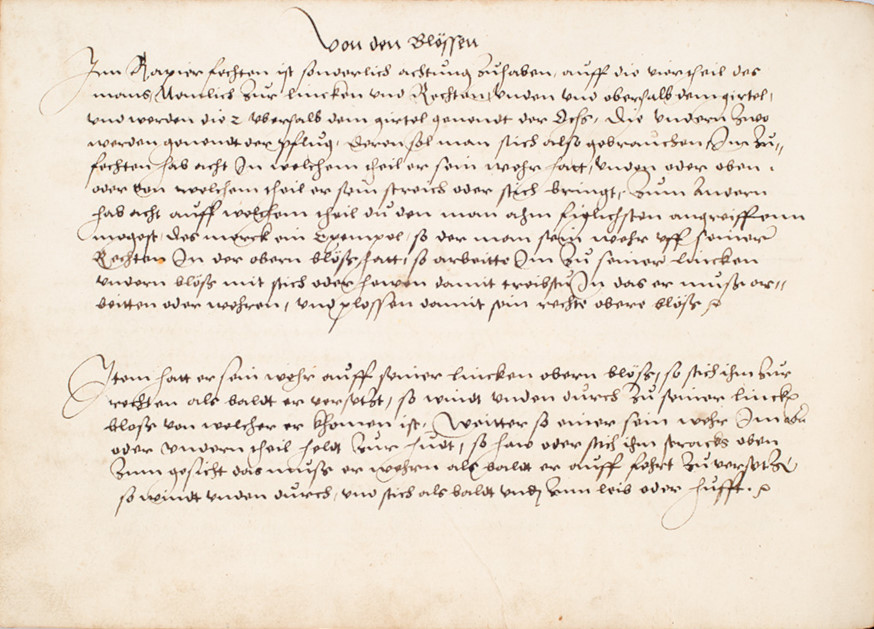 Von den Blössen
Inn Rapier fechten ist sonderlich achtung zuhaben, auff die viertheil des
mans, Nemlich zur lincken und Rechten, unden und oberhalb dem girtel,
und werden die 2 uberhalb dem girtel genendt der Ochs. Die undern zwo
werden genendt der pflug, deren sol man sich also gebrauchen, Im zu=
fechten hab acht In welchem theil er sein wehr hatt, unden oder oben.
oder von welchem theil er sein streich oder stich bringt, Zum Andern
hab acht auff welchem theil du den man ahm figlichsten angreiffenn
mogest, des merck ein Exempel, so der man sein wehr uff seiner
Rechten In der obern blösse hatt, so arbeitte Im zu seiner lincken
undern blösse mit stich oder hewen damit treibstu In das er musse ar=
beitten oder wehren, und plossen damit sein rechte obere blösse
Item hatt er sein wehr auff seiner lincken obern blösse, so stich ihm zur
rechten als baldt er versetzt, so windt unden durch zu seiner linck
blosse von welcher er khomen ist, Weitter so einer sein wehr Im
oder undern theil heldt zur hudt, so haw oder stich ihm stracks oben
zum gesicht das musse er wehrn als baldt er auff fehrt zuversetze
so windt unden durch, und stich als baldt und zum leib oder hufft.